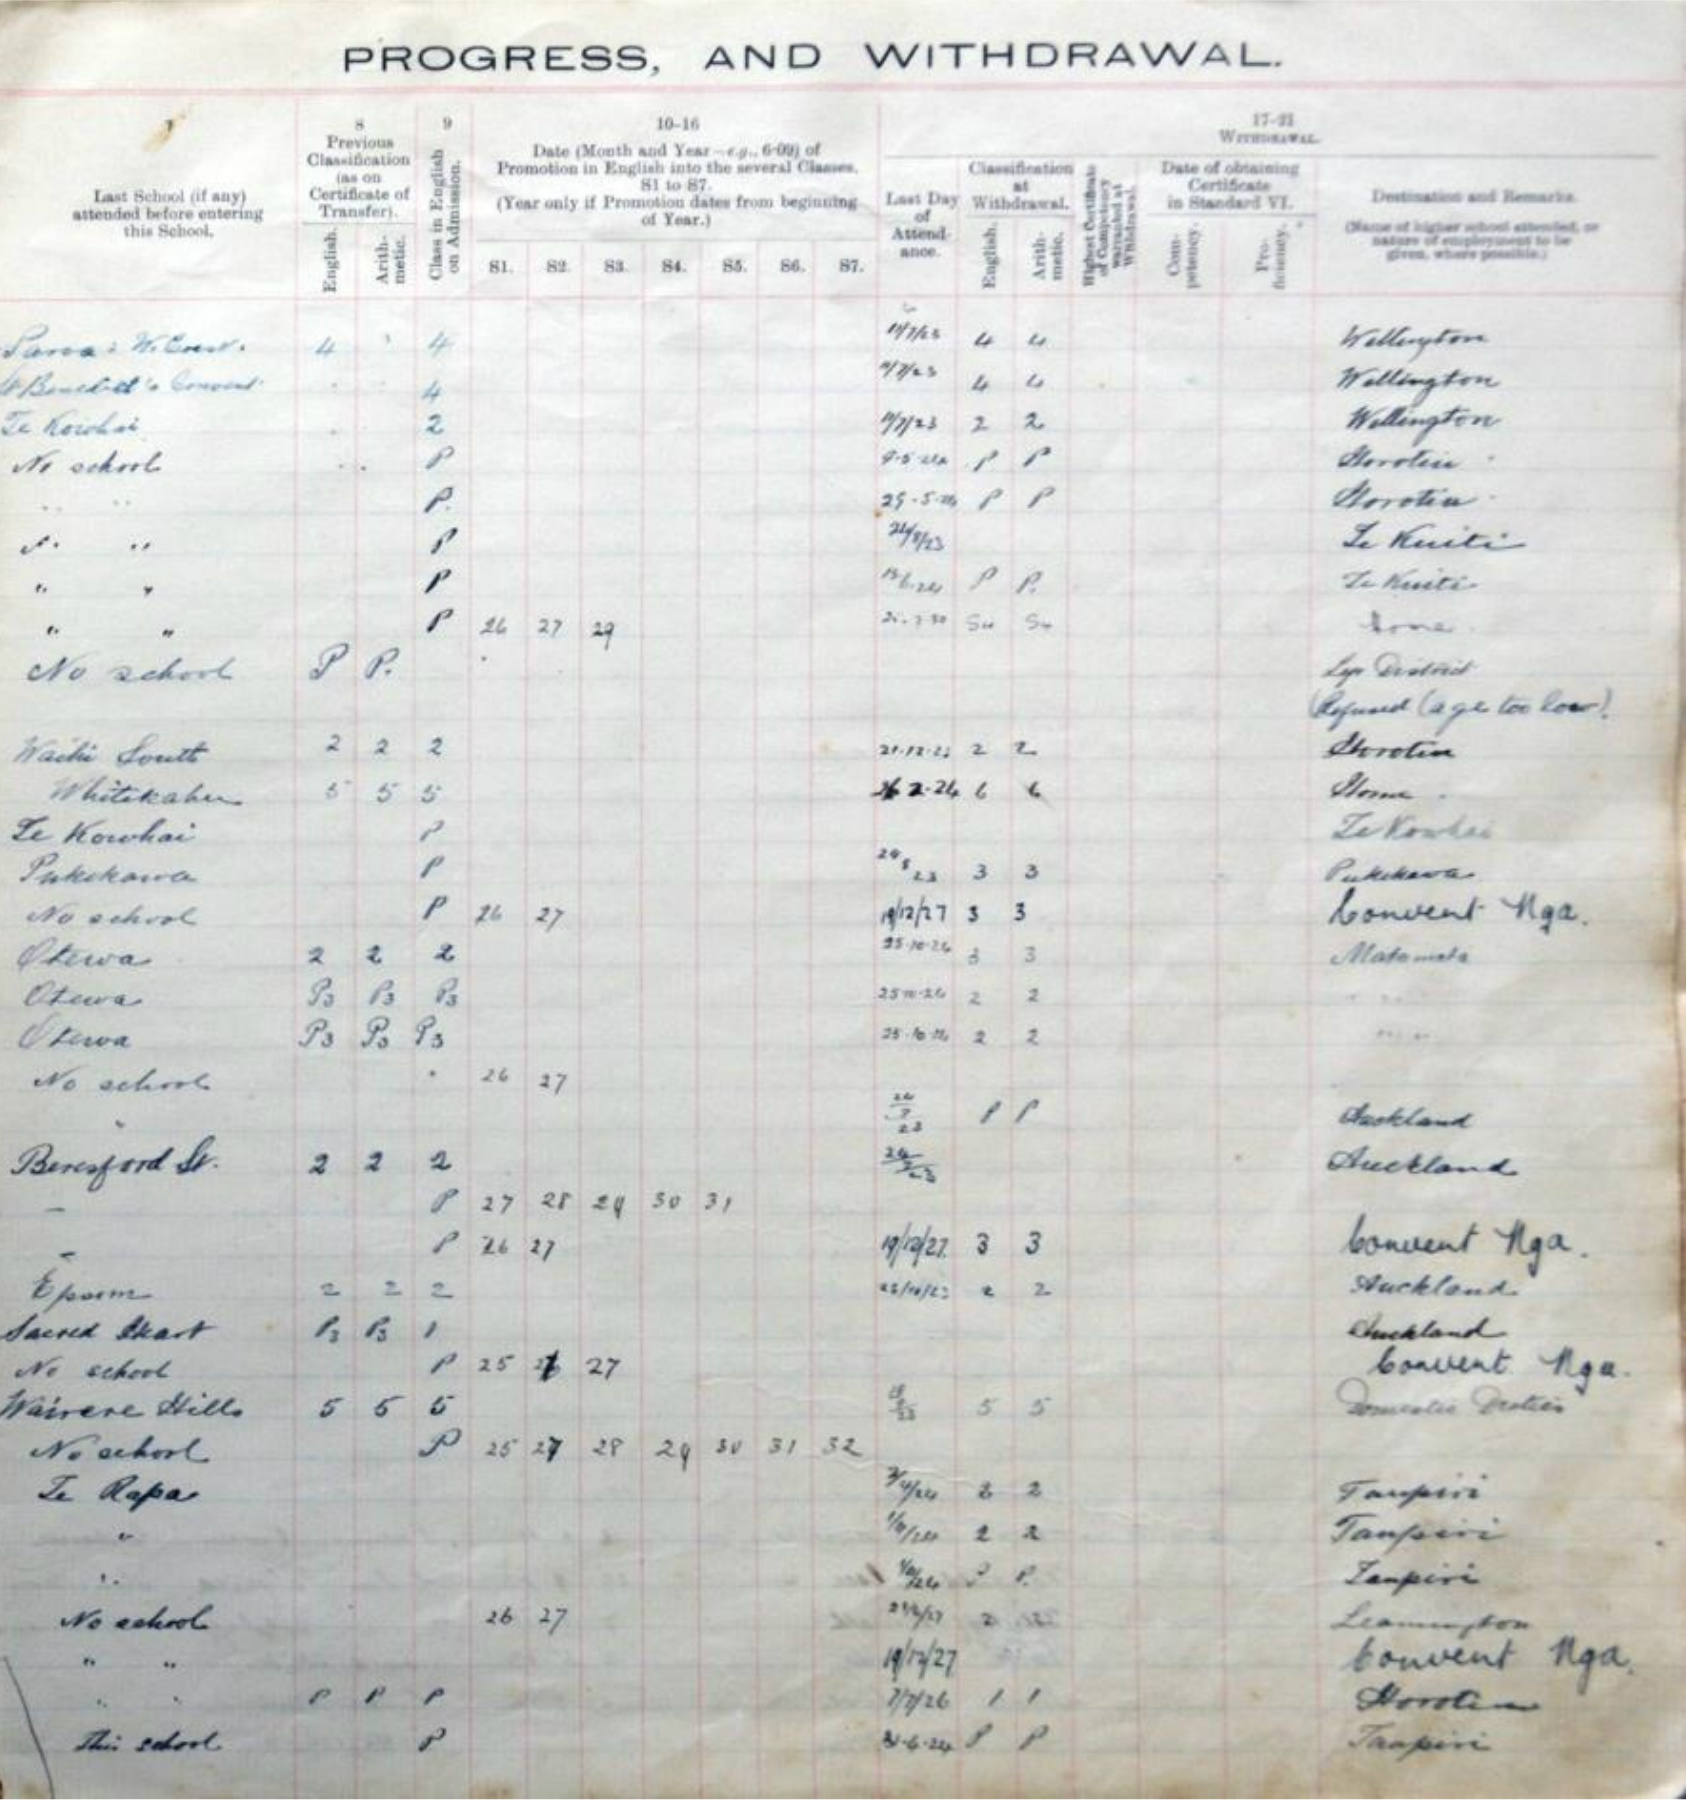 PROGRESS, AND WITHDRAWAL.
7 8 9 10-16 17-21
Last School (if any) attended before entering this School.
Previous Classification (as on Certificate of Transfer).
English. Arithmetic.
Class in English on Admission.
Date (Month and Year—e.g., 6-09) of Promotion in English into the several Classes, S1 to S7.
(Year only if Promotion dates from beginning of Year.)
S1. S2. S3. S4. S5. S6. S7.
WITHDRAWAL.
Last Day of Attendance.
Classification at Withdrawal.
English. Arithmetic.
Highest Certificate of Competency warranted at Withdrawal.
Date of obtaining Certificate in Standard VI.
Competency. Proficiency.
Destination and Remarks.
(Name of higher school attended, or nature of employment to be given, where possible.)
4 4 4 4 Wellington
St Benedict's Convent 4 4 4 Wellington
Te Kowhai 2 11/7/23 2 2 Wellington
No school P P P Horotiu
" " P. P P Horotiu
" " P Te Kuiti
" " P P P. Te Kuiti
" " P 26 27 29 S4 S4 Home
No school P P. District
Refused (age too low).
Waihi South 2 2 2 2 2 Horotiu
5 5 5 6 6 Home
Te Kowhai P Te Kowhai
Pukekawa P 3 3 Pukekawa
No school P 26 27 19/12/27 3 3 Convent Nga.
Otewa 2 2 2 25-10-24 3 3 Matamata
Otewa P3 P3 P3 25-10-24 2 2 " "
Otewa P3 P3 P3 25-10-24 2 2 " "
No school 26 27
" P P Auckland
Beresford St. 2 2 2 Auckland
– P 27 28 29 30 31
– P 26 27 19/12/27 3 3 Convent Nga.
Epsom 2 2 2 2 2 Auckland
Sacred Heart P3 P3 1 Auckland
No school P 25 26 27 Convent Nga.
Wairere Hills 5 5 5 5 5 Domestic Duties
No school P 25 27 28 29 30 31 32
Te Rapa 2 2 Taupiri
" 2 2 Taupiri
" P P. Taupiri
No school 26 27 2 Leamington
" " 19/12/27 Convent Nga.
" " P P P 7/7/26 1 1 Horotiu
This school P P P Taupiri